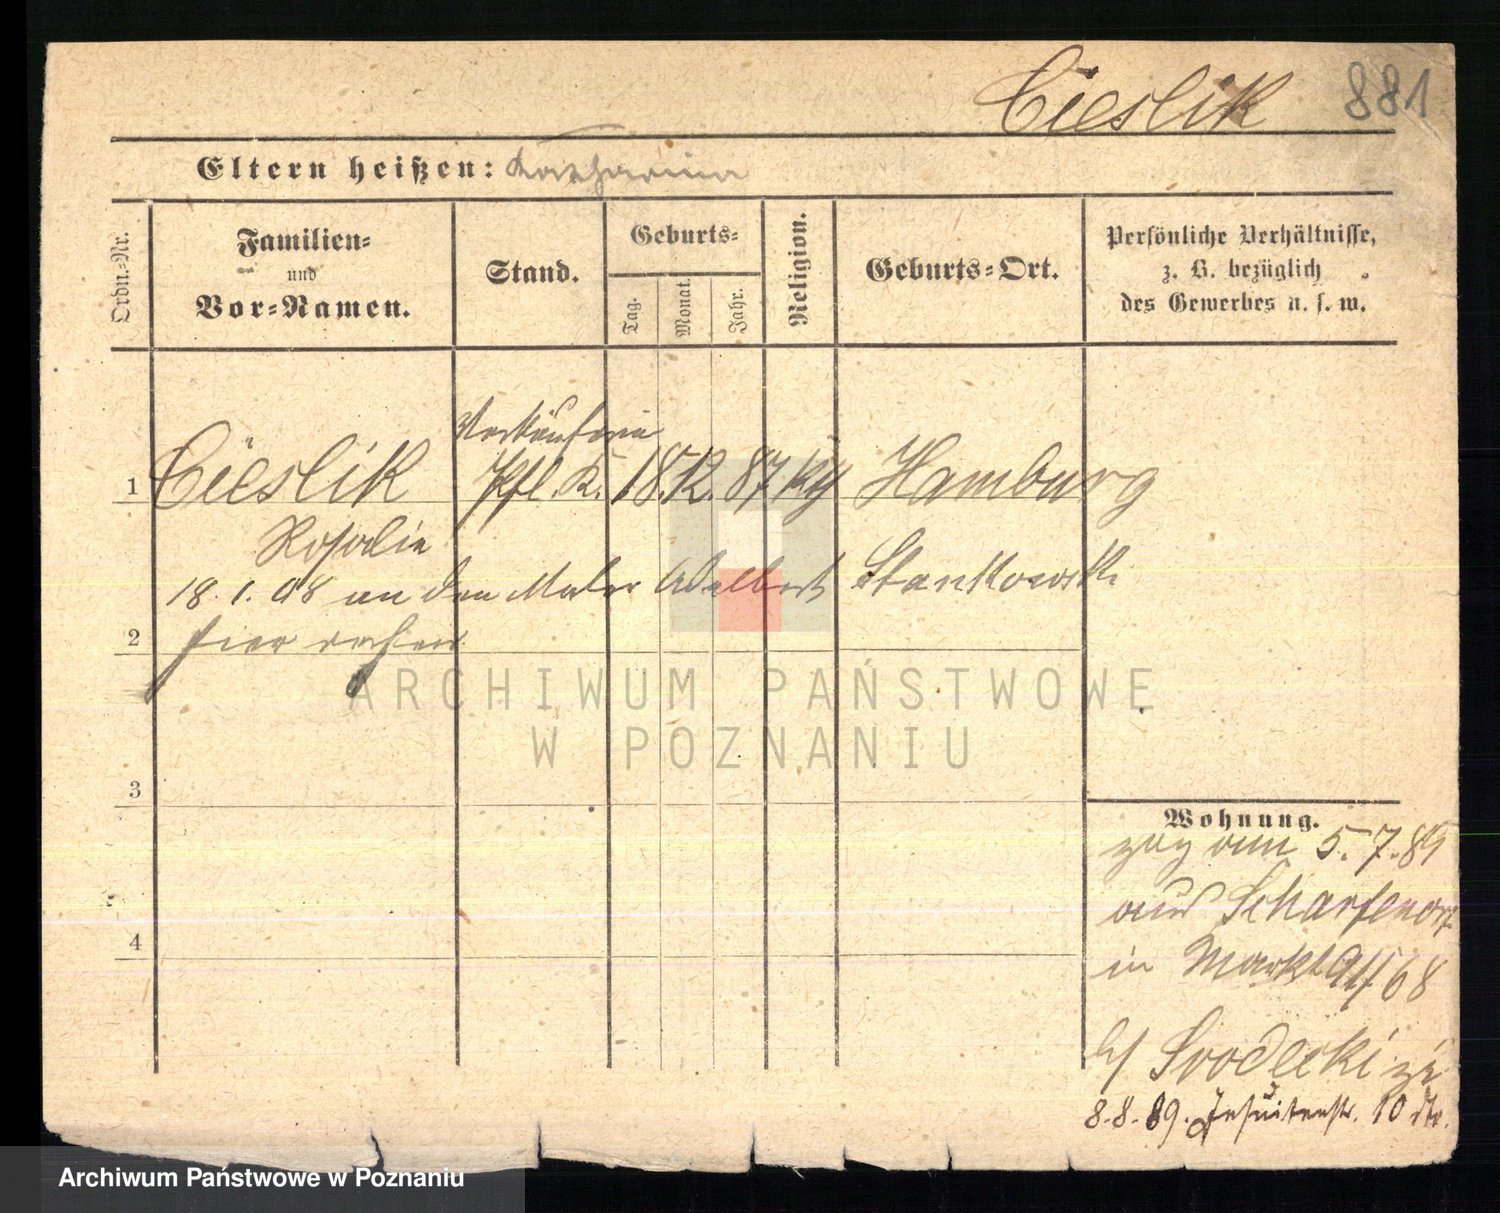 Cieslik 881
Eltern heißen: Katharina
Ordn.-Nr.
Familien-
und
Vor-Namen.
Stand.
Geburts-
Tag.
Monat.
Jahr.
Religion.
Geburts-Ort.
Persönliche Verhältnisse,
z. B. bezüglich
des Gewerbes u. s. w.
Verkäuferin
1 Cieslik Pfl. K. 18. 12. 87 kth Hamburg
Rosalie
18. 1. 08 an den Maler Adalbert Stankowski
2 hier verh.
3
4
Wohnung.
zog am 5. 7. 89
aus Scharfenort
in Markt 68
b/ Srodecki
8. 8. 89. Jesuitenstr. 10
ARCHIWUM PAŃSTWOWE
W POZNANIU
Archiwum Państwowe w Poznaniu